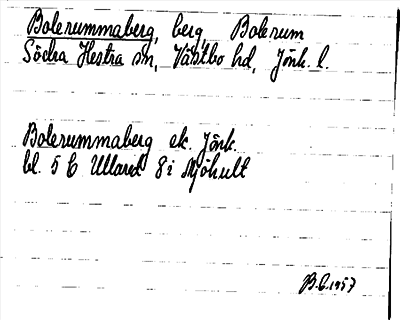 Bolerummaberg, berg, Bolerum
Södra Hestra sn, Västbo hd, Jönk. l.
Bolerummaberg ek. Jönk.
bl. 5 C Ullared 8 i Mjöhult
B.C. 1957